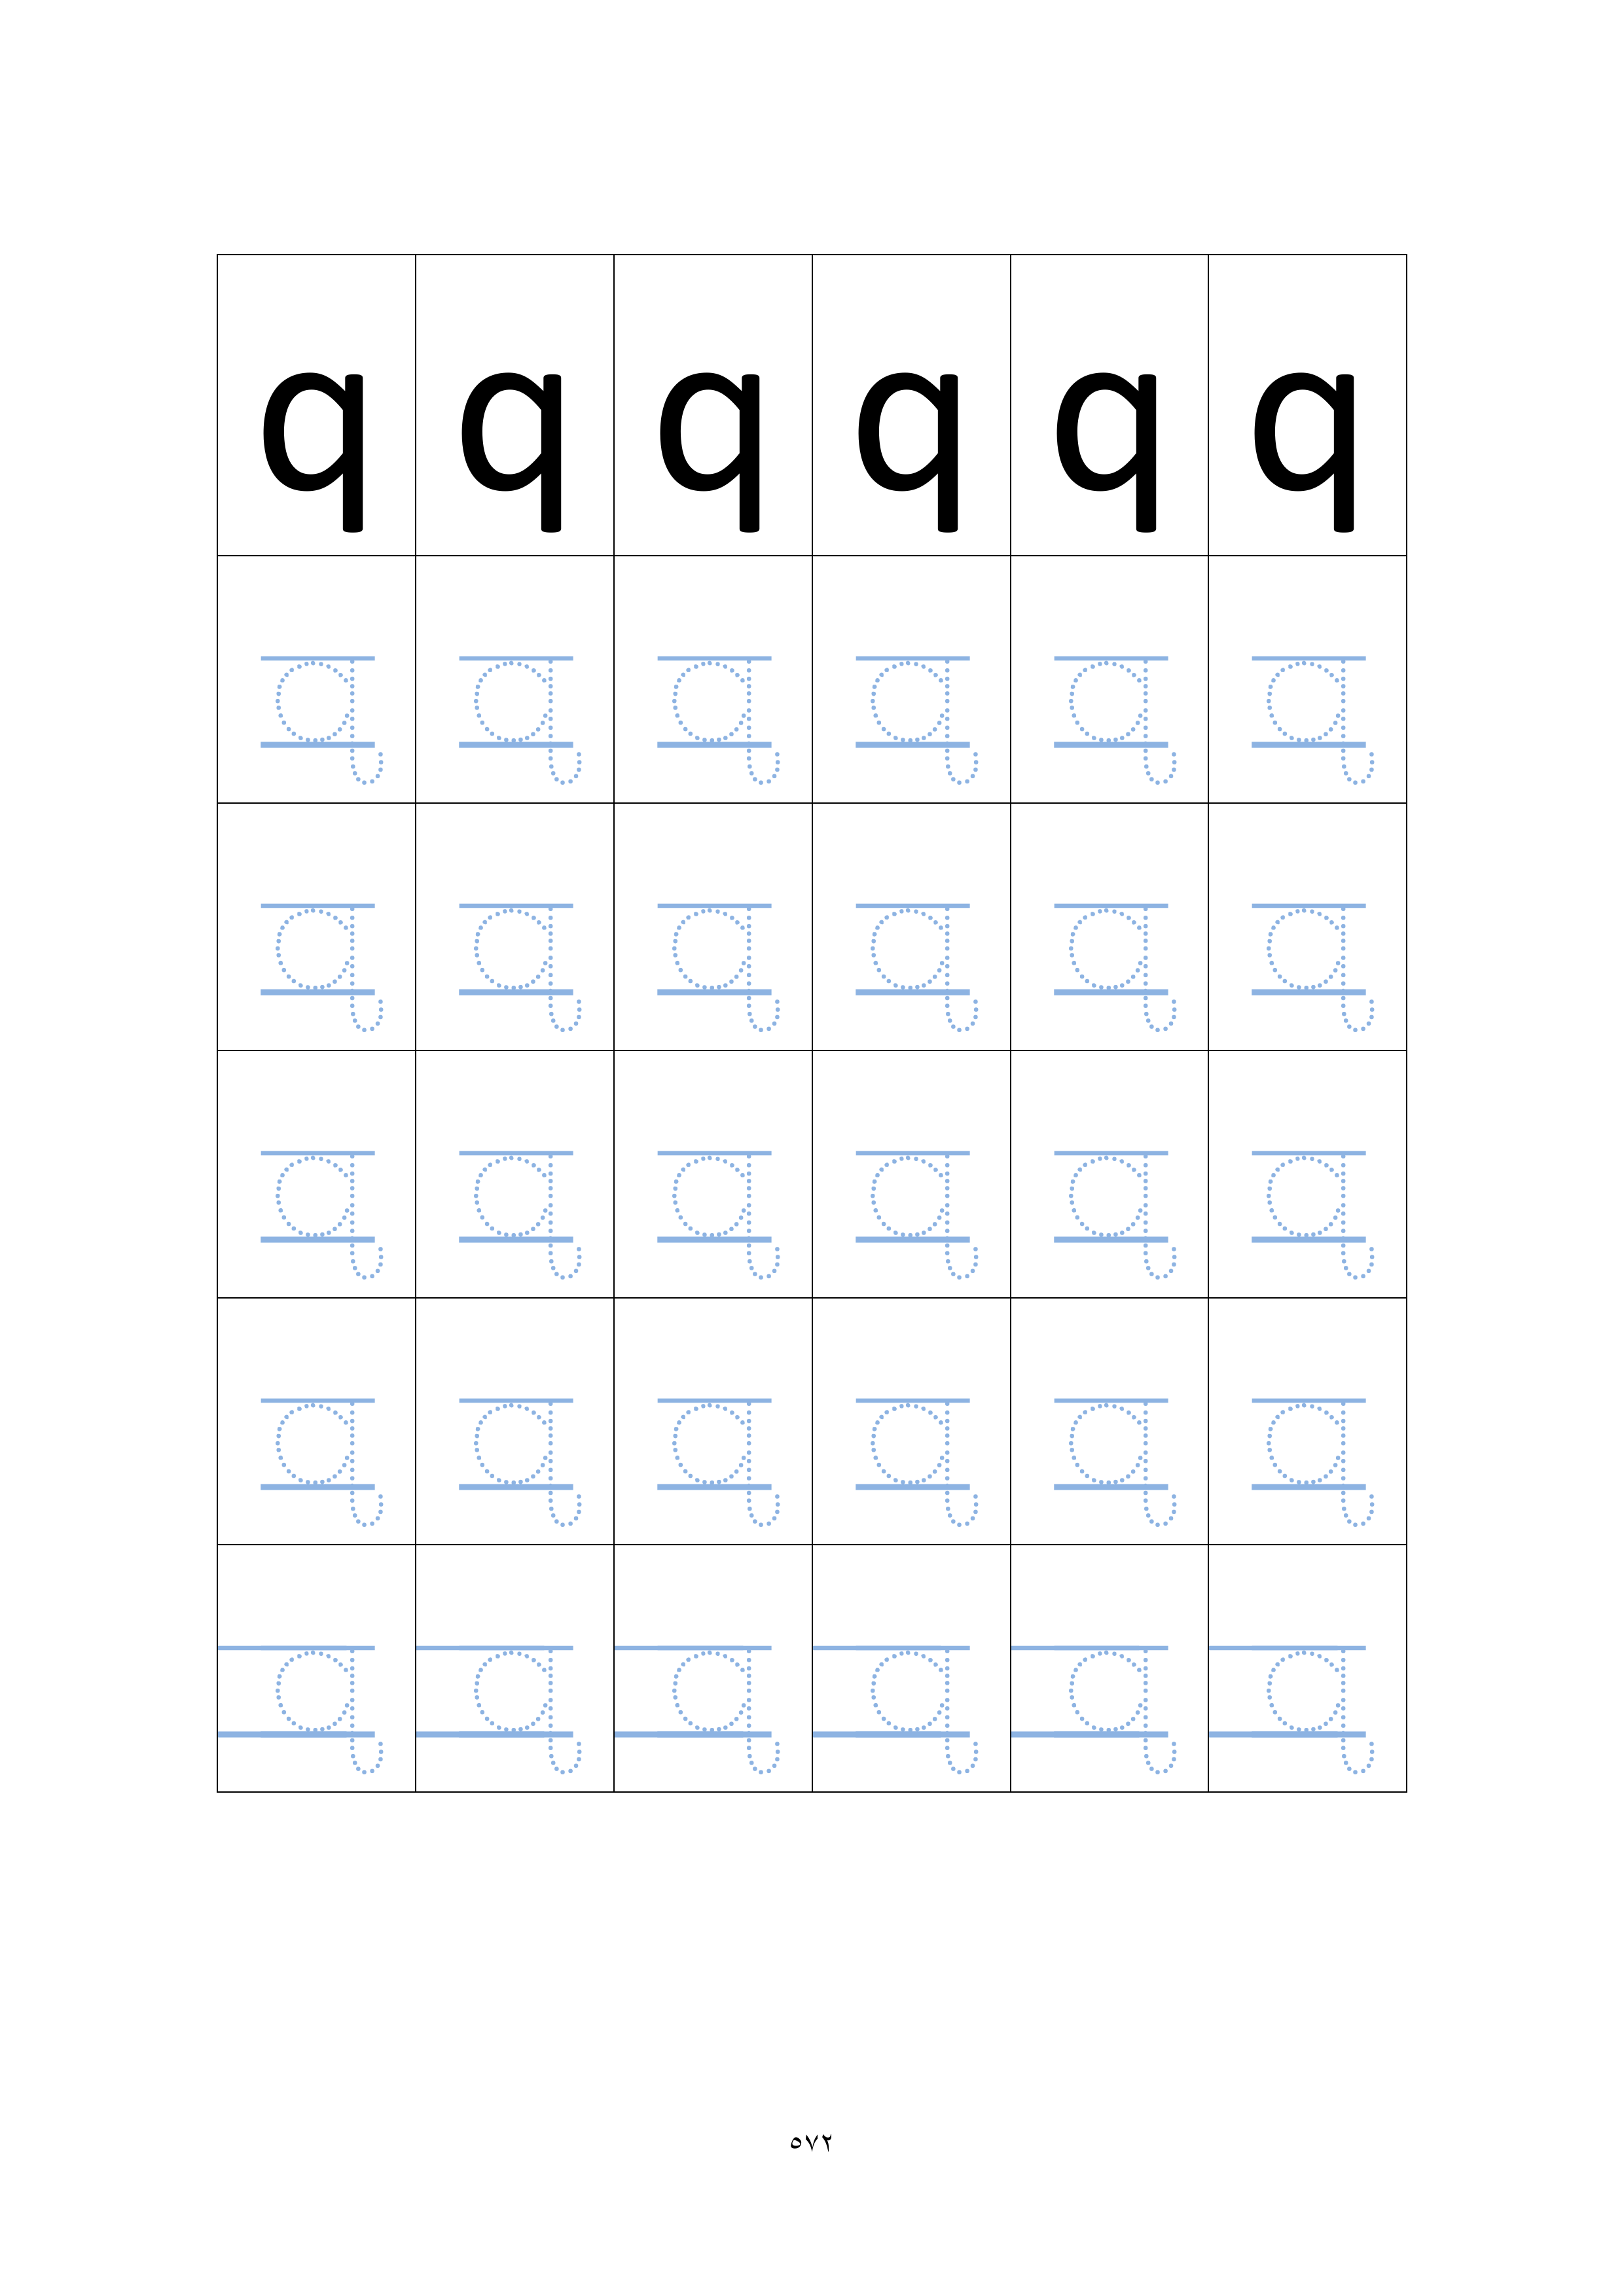 q q q q q q
q q q q q q
q q q q q q
q q q q q q
q q q q q q
q q q q q q
٥٧٢